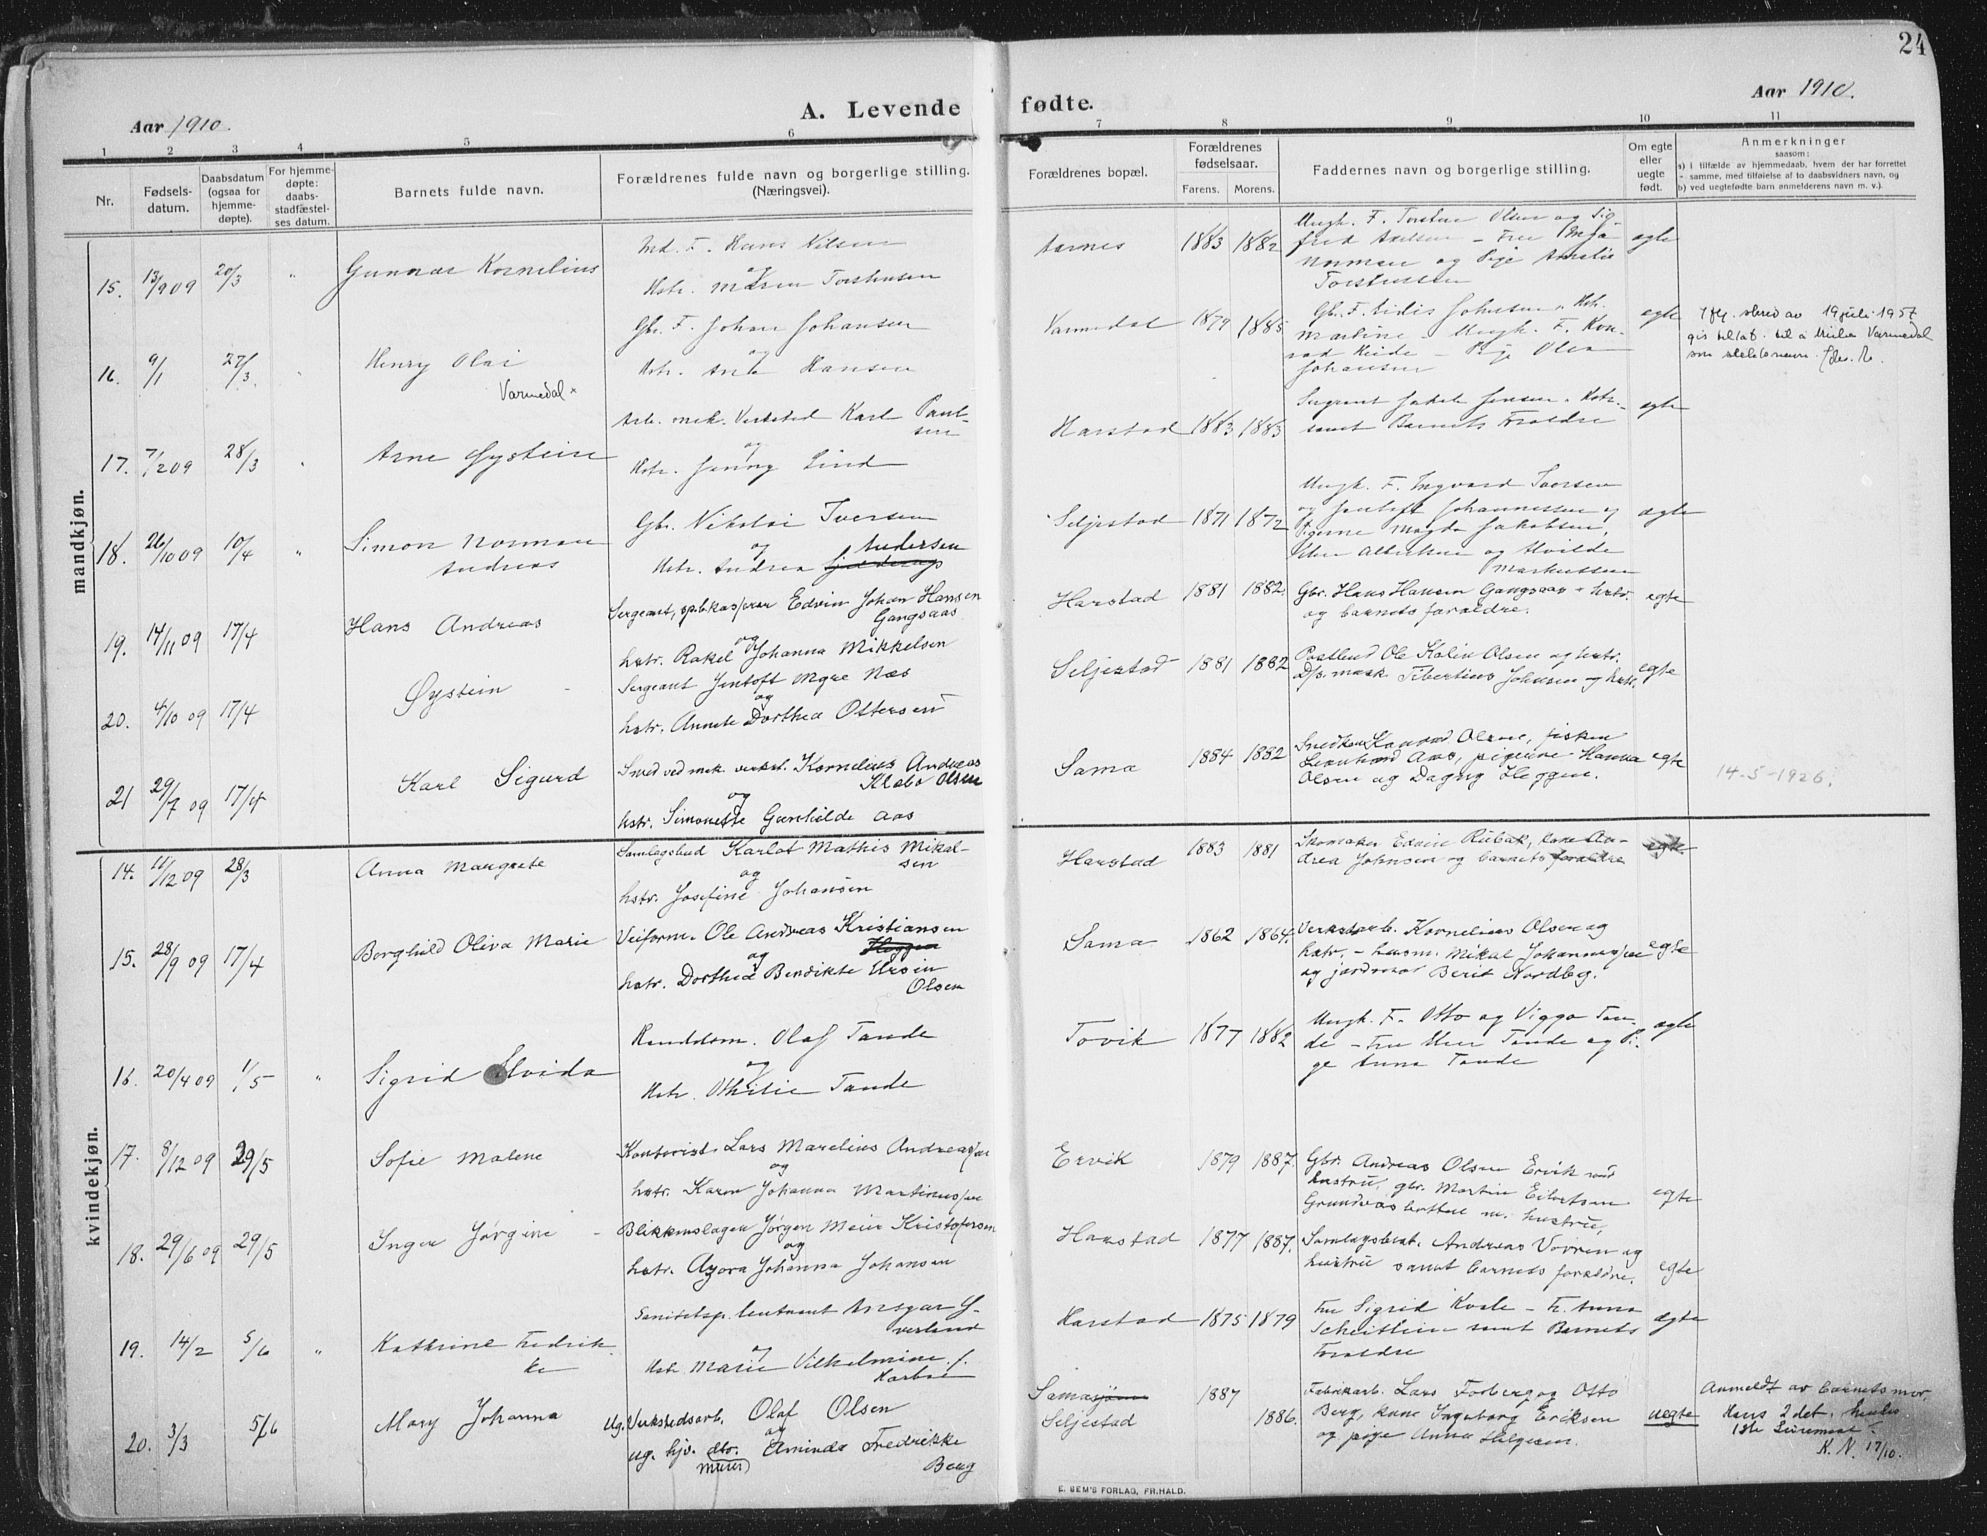 24
Aar 1910.
A. Levende fødte.
Aar 1910.
1 2 3 4 5 6 7 8 9 10 11
Nr.
Fødsels-
datum.
Daabsdatum
(ogsaa for
hjemme-
døpte).
For hjemme-
døpte:
daabs-
stadfæstel-
ses datum.
Barnets fulde navn.
Forældrenes fulde navn og borgerlige stilling.
(Næringsvei).
Forældrenes bopæl.
Forældrenes
fødselsaar.
Farens. Morens.
Faddernes navn og borgerlige stilling.
Om egte
eller
uegte
født.
Anmerkninger
saasom:
a) i tilfælde av hjemmedaab, hvem der har forrettet
samme, med tilføielse af to daabsvidners navn, og
b) ved uegtefødte barn anmelderens navn m. v.).
mandkjøn.
15. 13/9 09 20/3 " Gunnar Kornelius
Md. F. Hans Nilsen
og
Hstr. Maren Torstensen
Aarnes 1883 1882
Ungk. F. Torsten Olsen og Sig-
frid Axelsen - Fru
Norman og Pige Amalie
Torstensen
egte
16. 9/1 27/3. " Henry Olai
Varmedal x
Gbr. F. Johan Johansen
og
Hstr. Hansen
Varmedal 1879 1885
Gbr. F. Johnsen, Hstr.
Martine - Ungk. F. Kon-
rad - Pige Olea
Johansen
egte
I flg. skriv av 19 juli 1957
gis tillat. til å Varmedal
som slektsnavn.
17. 7/2 09 28/3 " Arne Øystein
Arb. mek. Verksted Karl Paul-
sen
og
Hstr. Jenny Lind
Harstad 1883 1883
Sergeant Jakob Jensen, Hstr.
samt Barnets Forældre
egte
18. 26/10 09 10/4 " Simon Norman
Andreas
Gbr. Nikolai Iversen
og Andersen
Hstr. Andrea
Seljestad 1871 1872
Ungk. F. Ingvard Iversen
og Jentoft Johannessen og
Pigerne Magda Jakobsen,
og
Markussen
egte
19. 14/11 09 17/4 Hans Andreas
Sergeant, spbkasserer Edvin Johan Hansen
Gangsaas
og
hstr. Rakel Johanna Mikkelsen
Harstad 1881 1882.
Gbr. Hans Hansen Gangsaas + hstr.
og barnets forældre.
egte
20. 4/10 09 17/4 Øystein -
Sergeant Jentoft Myre Næs
og
hstr. Annete Dorthea Ottersen
Seljestad 1881 1882
Postbud Ole Kolin Olsen og hstr.
D/s mask. Tibertius Johnsen og hstr.
egte
21 29/7 09 17/4 Karl Sigurd
Smed ved mek. verkst. Kornelius Andreas
Klebo Olsen
og
hstr. Simonette Gunhilde Aas
Sama 1884 1882
Snedker Konrad Olsen, fisker
Leonhard Aas, pigerne Hanna
Olsen og Dagny Heggen.
egte
14-5-1926.
kvindekjøn.
14. 11/12 09 28/3 Anna Margrete
Samlagsbud Karlot Mathis Mikal-
sen
og
hstr. Josefine Johansen
Harstad 1883 1881
Skomaker Edvin Rubak, kone An-
drea Johnsen og barnets forældre
egte
15. 28/9 09 17/4 Borghild Oliva Marie
Veiform. Ole Andreas Kristiansen
Heggen
og
hstr. Dorthea Bendikte Ursin
Olsen
Sama 1862 1864.
Verkstarb. Kornelius Olsen og
hstr. - husm. Mikal Johannessen
og jordmor Berit Nordbeg.
egte
16. 20/4 09 1/5 " Sigrid Alvida
Handelsm. Olaf Tande
og
Hstr. Othilie Tande
Tovik 1877 1882
Ungk. F. Otto og Viggo Tan-
de - Fru Tande og Pi-
ge Anna Tande
egte
17. 8/12 09 29/5 Sofie Malene
Kontorist Lars Marelius Andreassen
og
hstr. Karen Johanna Martinussen
Ervik 1879 1887.
Gbr. Andreas Olsen Ervik med
hustru, gbr. Martin Eilertsen
Grundvas botten m. hustru,
egte
18. 29/6 09 29/5 Inger Jørgine -
Blikkenslager Jørgen Meier Kristofersen
og
hstr. Agora Johanna Johansen
Harstad 1877 1887.
Samlagsbest. Andreas Vorren og
hustru samt barnets forældre.
egte
19. 14/2 5/6 " Kathrine Fredrik-
ke
Sanitetsp. leutnant Ansgar G-
verland
og
Hstr. Marie Vilhelmine f.
Harstad 1875 1879
Fru Sigrid Kvale - Fr. Anna
Scheitlien samt Barnets
Forældre
egte
20. 3/3 5/6 Mary Johanna
Ug. Verkstedsarb. Olaf Olsen
og
ug. hjv. dtr. Aminda Fredrikke
(murer) Berg
Samasjøen
Seljestad 1887 1886.
Fabrikarb. Lars Forberg og Otto
Berg, kone Ingeborg Eriksen
og pige Anna Helgesen.
uegte
Anmeldt av barnets mor.
Hans 2det, hendes
1ste Leiermaal.
K. N. 17/10.
E. SEM'S FORLAG, FR.HALD.